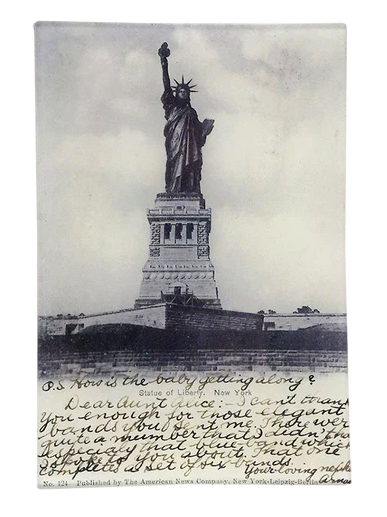 P.S. How is the baby getting along?
Statue of Liberty. New York
Dear Aunt Alice:- I can't thank
you enough for those elegant
bands you sent me. There were
quite a number that I didn't have
especialy that blue band which
I spoke to you about. That one
completes a set of six bands.
Your loving nephew
No. 124 Published by The American News Company, New York-Leipzig-Berlin